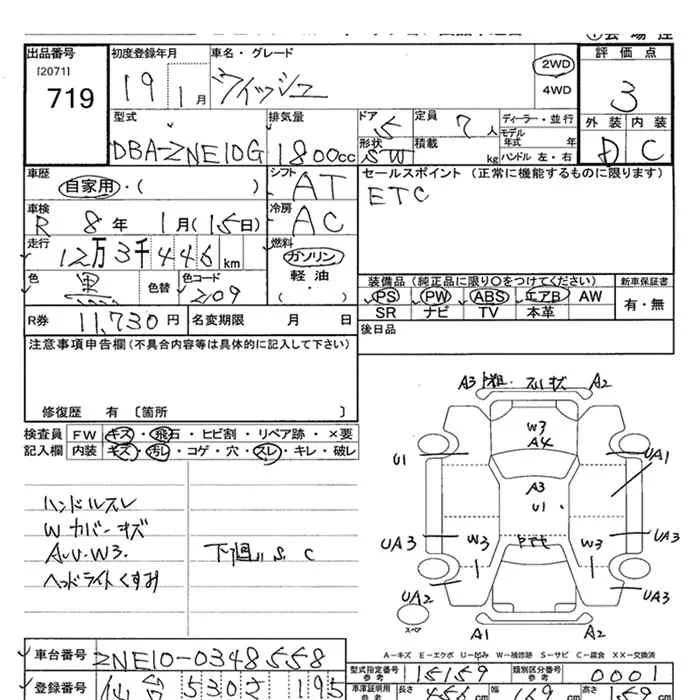 出品番号
[2071]
719
初度登録年月
19 1月
車名・グレード
ウィッシュ
2WD
4WD
評価点
3
外装 内装
D C
型式
DBA-ZNE10G
排気量
1800cc
ドア 5
形状 SW
定員 7人
積載 kg
ディーラー・並行
モデル年式 年式
ハンドル 左・右
車歴
自家用・( )
シフト AT
セールスポイント(正常に機能するものに限ります)
ETC
車検
R 8年 1月(15日)
冷房 AC
走行
12万3千446km
燃料
ガソリン
軽油
( ・ )
色 黒
色替
色コード
209
装備品(純正品に限り○をつけてください)
PS PW ABS エアB AW
SR ナビ TV 本革
新車保証書
有・無
R券 11,730円
名変期限 月 日
後日品
注意事項申告欄(不具合内容等は具体的に記入して下さい)
修復歴 有〔箇所 〕
検査員
記入欄
FW キズ・飛石・ヒビ割・リペア跡・×要
内装 キズ・汚れ・コゲ・穴・スレ・キレ・破レ
ハンドルスレ
Wカバーキズ
A.U.W3.
ヘッドライトくすみ
下廻り S C
A3 スリキズ A2
W3
A4
U1
UA1
A3
U1
UA3 W3 W3 UA3
UA2
UA3
スペア
A1 A2
A-キズ E-エクボ U-凹み W-補修跡 S-サビ C-腐食 XX-交換済
車台番号
ZNE10-0348558
型式指定番号
参考
15159
類別区分番号
参考
0001
登録番号
仙台 530 2 195
車庫証明用
参考
長さ 456cm 幅 169cm 高さ 159cm